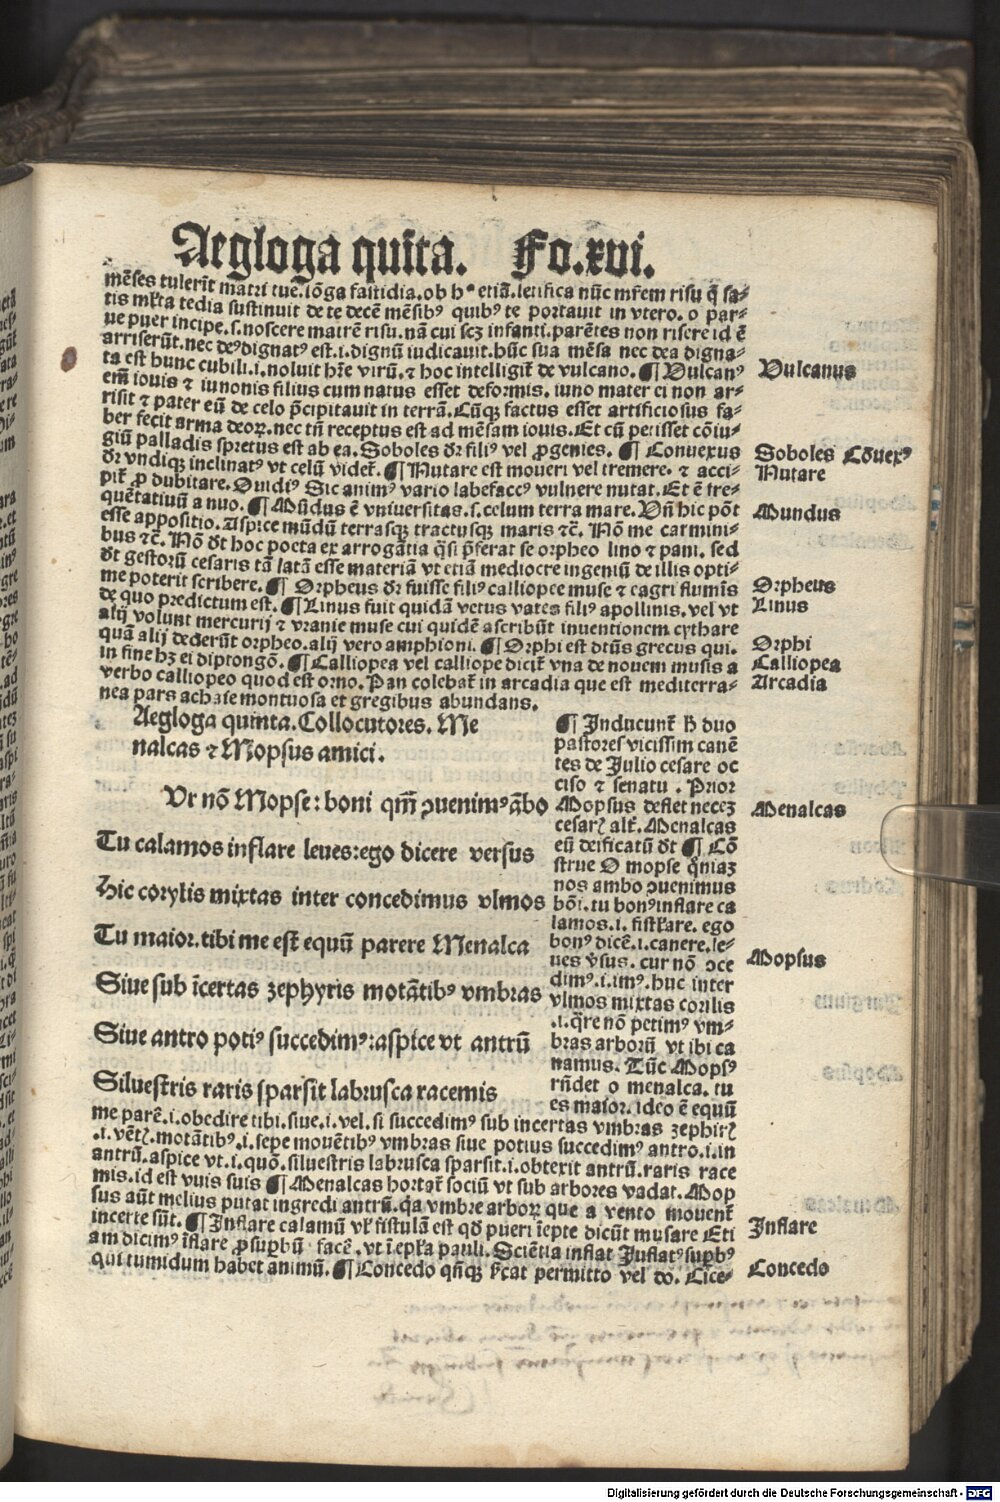 Aegloga quīta. Fo.xvi.
mēses tulerīt matri tue.lōga fastidia.ob hꝰ etiā.letifica nūc mr̄em risu q̄ sa⸗
tis ml̄ta tedia sustinuit de te decē mēsibꝰ quibꝰ te portauit in vtero. o par⸗
ue puer incipe.s.noscere matrē risu.nā cui scz infanti.parētes non risere id ē
arriserūt.nec deꝰ dignatꝰ est.i.dignū iudicauit.hūc sua mēsa nec dea digna⸗
ta est hunc cubili.i.noluit hr̄e virū.⁊ hoc intelligit᷑ de vulcano. ¶ Vulcanꝰ
em̄ iouis ⁊ iunonis filius cum natus esset deformis. iuno mater ei non ar⸗
risit ⁊ pater eū de celo p̄cipitauit in terrā.Cūqꝫ factus esset artificiosus fa⸗
ber fecit arma deoꝝ.nec tn̄ receptus est ad mēsam iouis.Et cū petisset cōiu⸗
giū palladis spretus est ab ea.Soboles dr̄ filiꝰ vel ꝓgenies. ¶ Conuexus
dr̄ vndiqꝫ inclinatꝰ vt celū videt᷑. ¶ Nutare est moueri vel tremere. ⁊ acci⸗
pit᷑ ꝓ dubitare. Ouidiꝰ Sic animꝰ vario labefactꝰ vulnere nutat. Et ē fre⸗
quētatiuū a nuo. ¶ Mūdus ē vniuersitas.s.celum terra mare. Vn̄ hic pōt
esse appositio. Aspice mūdū terrasqꝫ tractusqꝫ maris ⁊c̄. Nō me carmini⸗
bus ⁊c̄. Nō dt̄ hoc poeta ex arrogātia q̄si p̄ferat se orpheo lino ⁊ pani. sed
dt̄ gestorū cesaris tā latā esse materiā vt etiā mediocre ingeniū de illis opti⸗
me poterit scribere. ¶ Orpheus dr̄ fuisse filiꝰ calliopee muse ⁊ eagri flumīs
de quo predictum est. ¶ Linus fuit quidā vetus vates filiꝰ apollinis. vel vt
alij volunt mercurij ⁊ vranie muse cui quidē ascribūt inuentionem cythare
quā alij dederūt orpheo.alij vero amphioni. ¶ Orphi est dtūs grecus qui.
in fine hꝫ ei diptongō. ¶ Calliopea vel calliope dicit᷑ vna de nouem musis a
verbo calliopeo quod est orno. Pan colebat᷑ in arcadia que est mediterra⸗
nea pars achaie montuosa et gregibus abundans.
Vulcanus
Soboles Cōuexꝰ
Nutare
Mundus
Orpheus
Linus
Orphi
Calliopea
Arcadia
Aegloga quinta. Collocutores. Me
nalcas ⁊ Mopsus amici.
Ur nō Mopse: boni qm̄ ꝯuenimꝰ ābo
Tu calamos inflare leues:ego dicere versus
Hic corylis mixtas inter concedimus vlmos
Tu maior.tibi me est equū parere Menalca
Siue sub īcertas zephyris motātibꝰ vmbras
Siue antro potiꝰ succedimꝰ:aspice vt antrū
Siluestris raris sparsit labrusca racemis
¶ Inducunt᷑ h̄ duo
pastores vicissim canē
tes de Julio cesare oc
ciso ē senatu . Prior
Mopsus deflet necez
cesarꝭ alt᷑. Menalcas
eū deificatū dt̄ ¶ Cō
strue O mopse q̄niaz
nos ambo ꝯuenimus
bōi.tu bonꝰ inflare ca
lamos.i. fistl̄are. ego
bonꝰ dicē.i.canere.le⸗
ues v̄sus. cur nō ꝯce
dimꝰ.i.imꝰ.huc inter
vlmos mixtas corilis
.i.q̄re nō petimꝰ vm⸗
bras arborū vt ibi ca
namus. Tūc Mopsꝰ
rn̄det o menalca. tu
es maior. ideo ē equū
Menalcas
Mopsus
me parē.i.obedire tibi.siue.i.vel.si succedimꝰ sub incertas vmbras zephirꝭ
.i.vētꝭ.motātibꝰ.i.sepe mouētibꝰ vmbras siue potius succedimꝰ antro.i.in
antrū.aspice vt.i.quō.siluestris labrusca sparsit.i.obtexit antrū.raris race
mis.id est vuis suis ¶ Menalcas hortat᷑ sociū vt sub arbores vadat. Mop
sus aūt melius putat ingredi antrū.q̄a vmbre arborꝝ que a vento mouent᷑
incerte sūt. ¶ Inflare calamū vl̄ fistulā est qd̄ pueri īepte dicūt musare Eti
am dicimꝰ īflare ꝓ suꝑbū facē. vt ī epl̄a pauli. Sciētia inflat Inflatꝰ suꝑbꝰ
qui tumidum habet animū. ¶ Concedo qn̄qꝫ s̄cat permitto vel do. Cice⸗
Inflare
Concedo
Digitalisierung gefördert durch die Deutsche Forschungsgemeinschaft - DFG